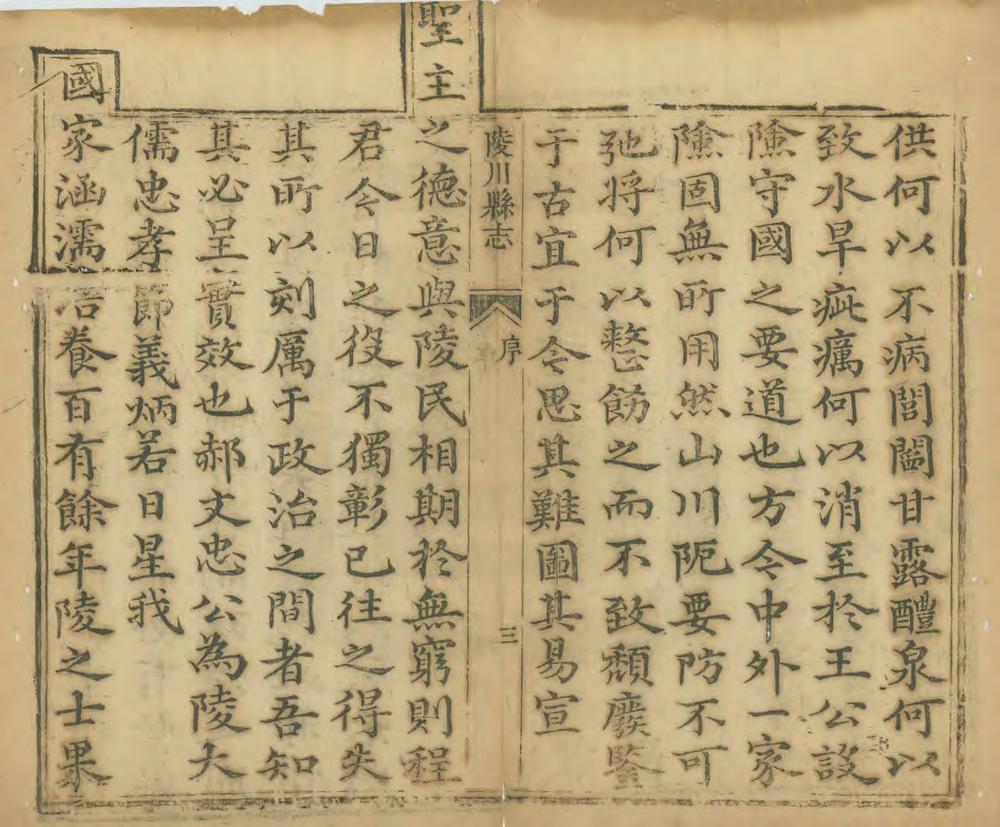 供何以不病閭閻甘露醴泉何以
致水旱疵癘何以消至於王公設
險守國之要道也方今中外一家
險固無所用然山川阨要防不可
弛將何以整飭之而不致頹廢鑒
于古宜于今思其難圖其易宣
陵川縣志
序
三
聖主之德意與陵民相期於無窮則程
君今日之役不獨彰已往之得失
其所以刻厲于政治之間者吾知
其必呈實效也郝文忠公為陵大
儒忠孝節義炳若日星我
國家涵濡培養百有餘年陵之士果